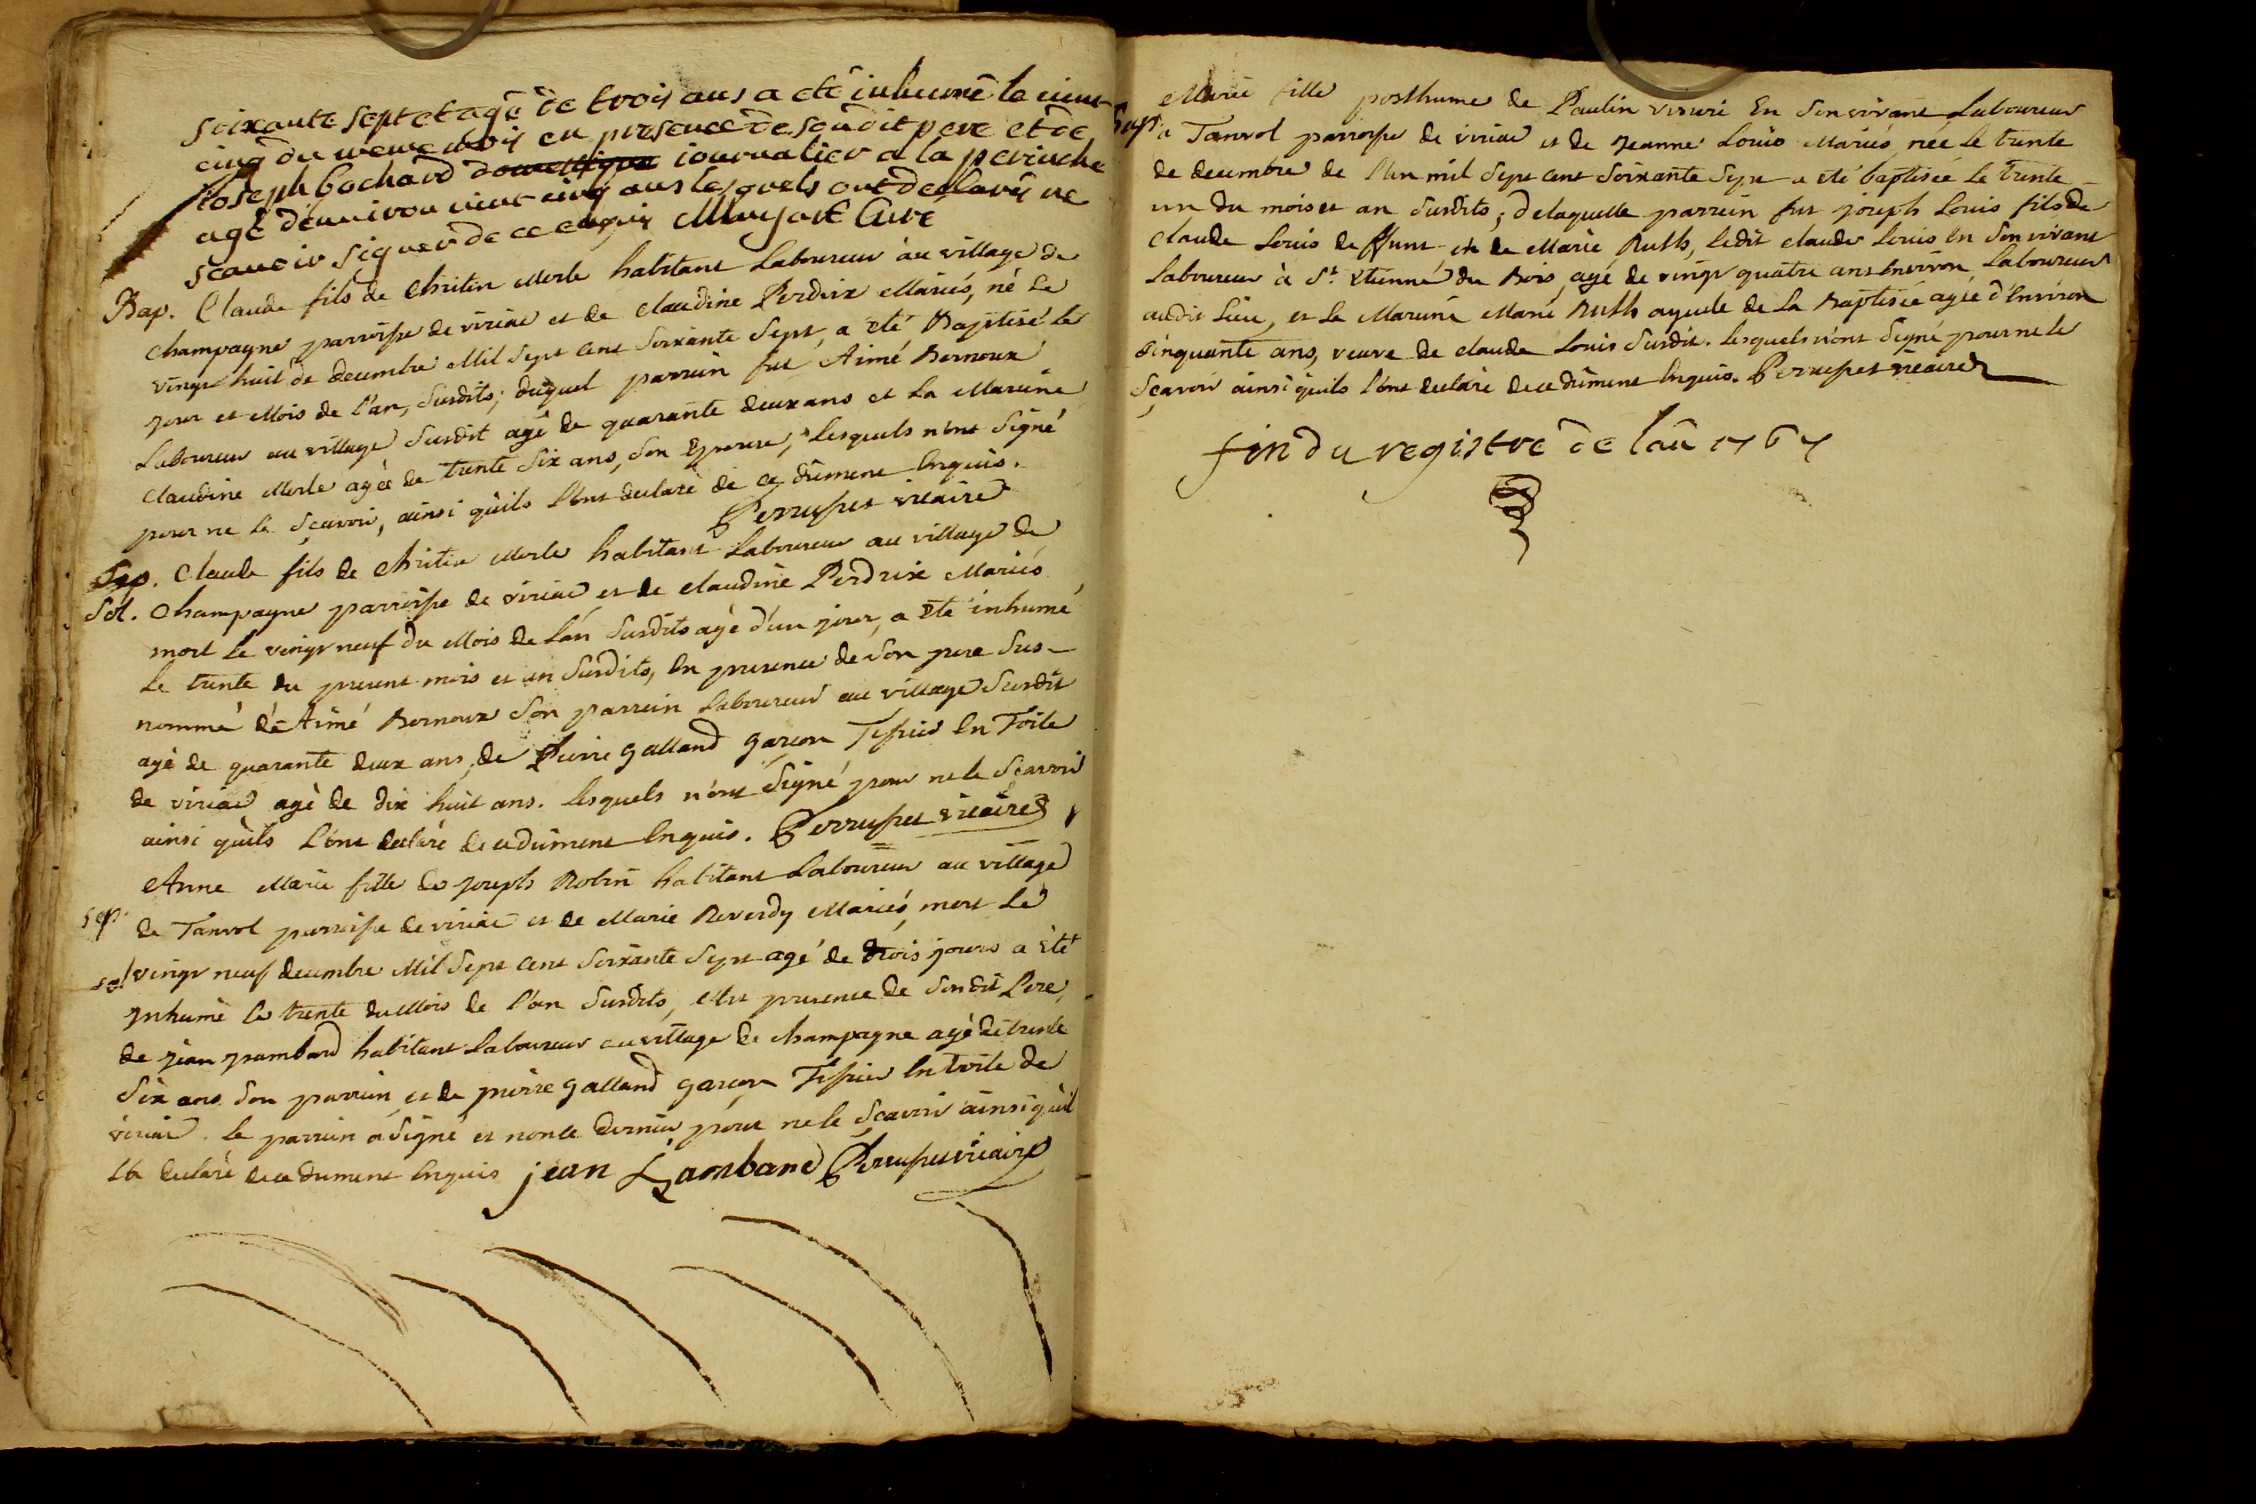 soixante sept et agé de trois ans a eté inhumé le vint
cinq du meme mois en presence de son dit pere et de
Joseph bochard domestique journalier a la perinche
agé d'environ vint cinq ans lesquels ont declaré ne
scavoir signer de ce enquis Curé
Bap. Claude fils de Christin Merle habitant Laboureur au village de
Champagne parroisse de viriac et de Claudine Perdrix Mariés, né le
vingt huit de decembre Mil Sept cent Soixante Sept, a eté Baptisé le
jour et Mois de l'an, Susdits; duquel parrein fut Aimé Bernoux
Laboureur au village Susdit agé de quarante deux ans et la Mareine
Claudine Merle agée de trente Six ans, Son Epouse, Lesquels n'ont Signé
pour ne le Sçavoir, ainsi qu'ils l'ont declaré de ce dûment Enquis.
Perruset vicaire
Sep. Claude fils de Christin Merle habitant Laboureur au village de
Sol. Champagne parroisse de viriac et de Claudine Perdrix Mariés
mort le vingt neuf du Mois de l'an Susdits agé d'un jour, a Eté inhumé
le trente du present mois et an Susdits, En presence de Son pere Sus-
nommé de Aimé Bernoux Son parrein Laboureur au village Susdit
agé de quarante deux ans, de Pierre Galland garçon Tissier En Toile
de viriac agé de dix huit ans. Lesquels n'ont Signé pour ne le Sçavoir
ainsi qu'ils l'ont declaré de ce dûment Enquis. Perruset vicaire
Anne Marie fille de Joseph Robin habitant Laboureur au village
sep. de Tanvol parroisse de viriac et de Marie Reverdy Mariés, mort le
sol vingt neuf decembre Mil Sept cent Soixante Sept agé de trois jours a Eté
Inhumé le trente du Mois de l'an Susdits, En presence de Son dit Pere,
de Jean habitant Laboureur au village de Champagne agé de trente
Six ans Son parrein et de pierre Galland garçon Tissier En toile de
viriac. Le parrein a Signé et non le dernier pour ne le Sçavoir ainsi qu'il
l'a declaré de ce dument Enquis jean Perruset vicaire
Marie fille posthume de Paulin En Son vivant Laboureur
Bap. a Tanvol parroisse de viriac et de Jeanne Louis Mariés, née le trente
de decembre de l'an mil Sept cent Soixante Sept a eté baptisée le trente
un du mois et an Susdits; de laquelle parrein fut Joseph Louis fils de
Claude Louis defunt et de Marie Ruth, ledit Claude Louis En Son vivant
Laboureur à St. Etienne du Bois, agé de vingt quatre ans Environ, Laboureur
audit Lieu, et la Mareine Marie Ruth ayeule de La Baptisée agée d'Environ
cinquante ans, veuve de Claude Louis Susdit. Lesquels n'ont Signé pour ne le
Sçavoir ainsi qu'ils l'ont declaré de ce dûment Enquis. Perruset vicaire
fin du registre de l'an 1767